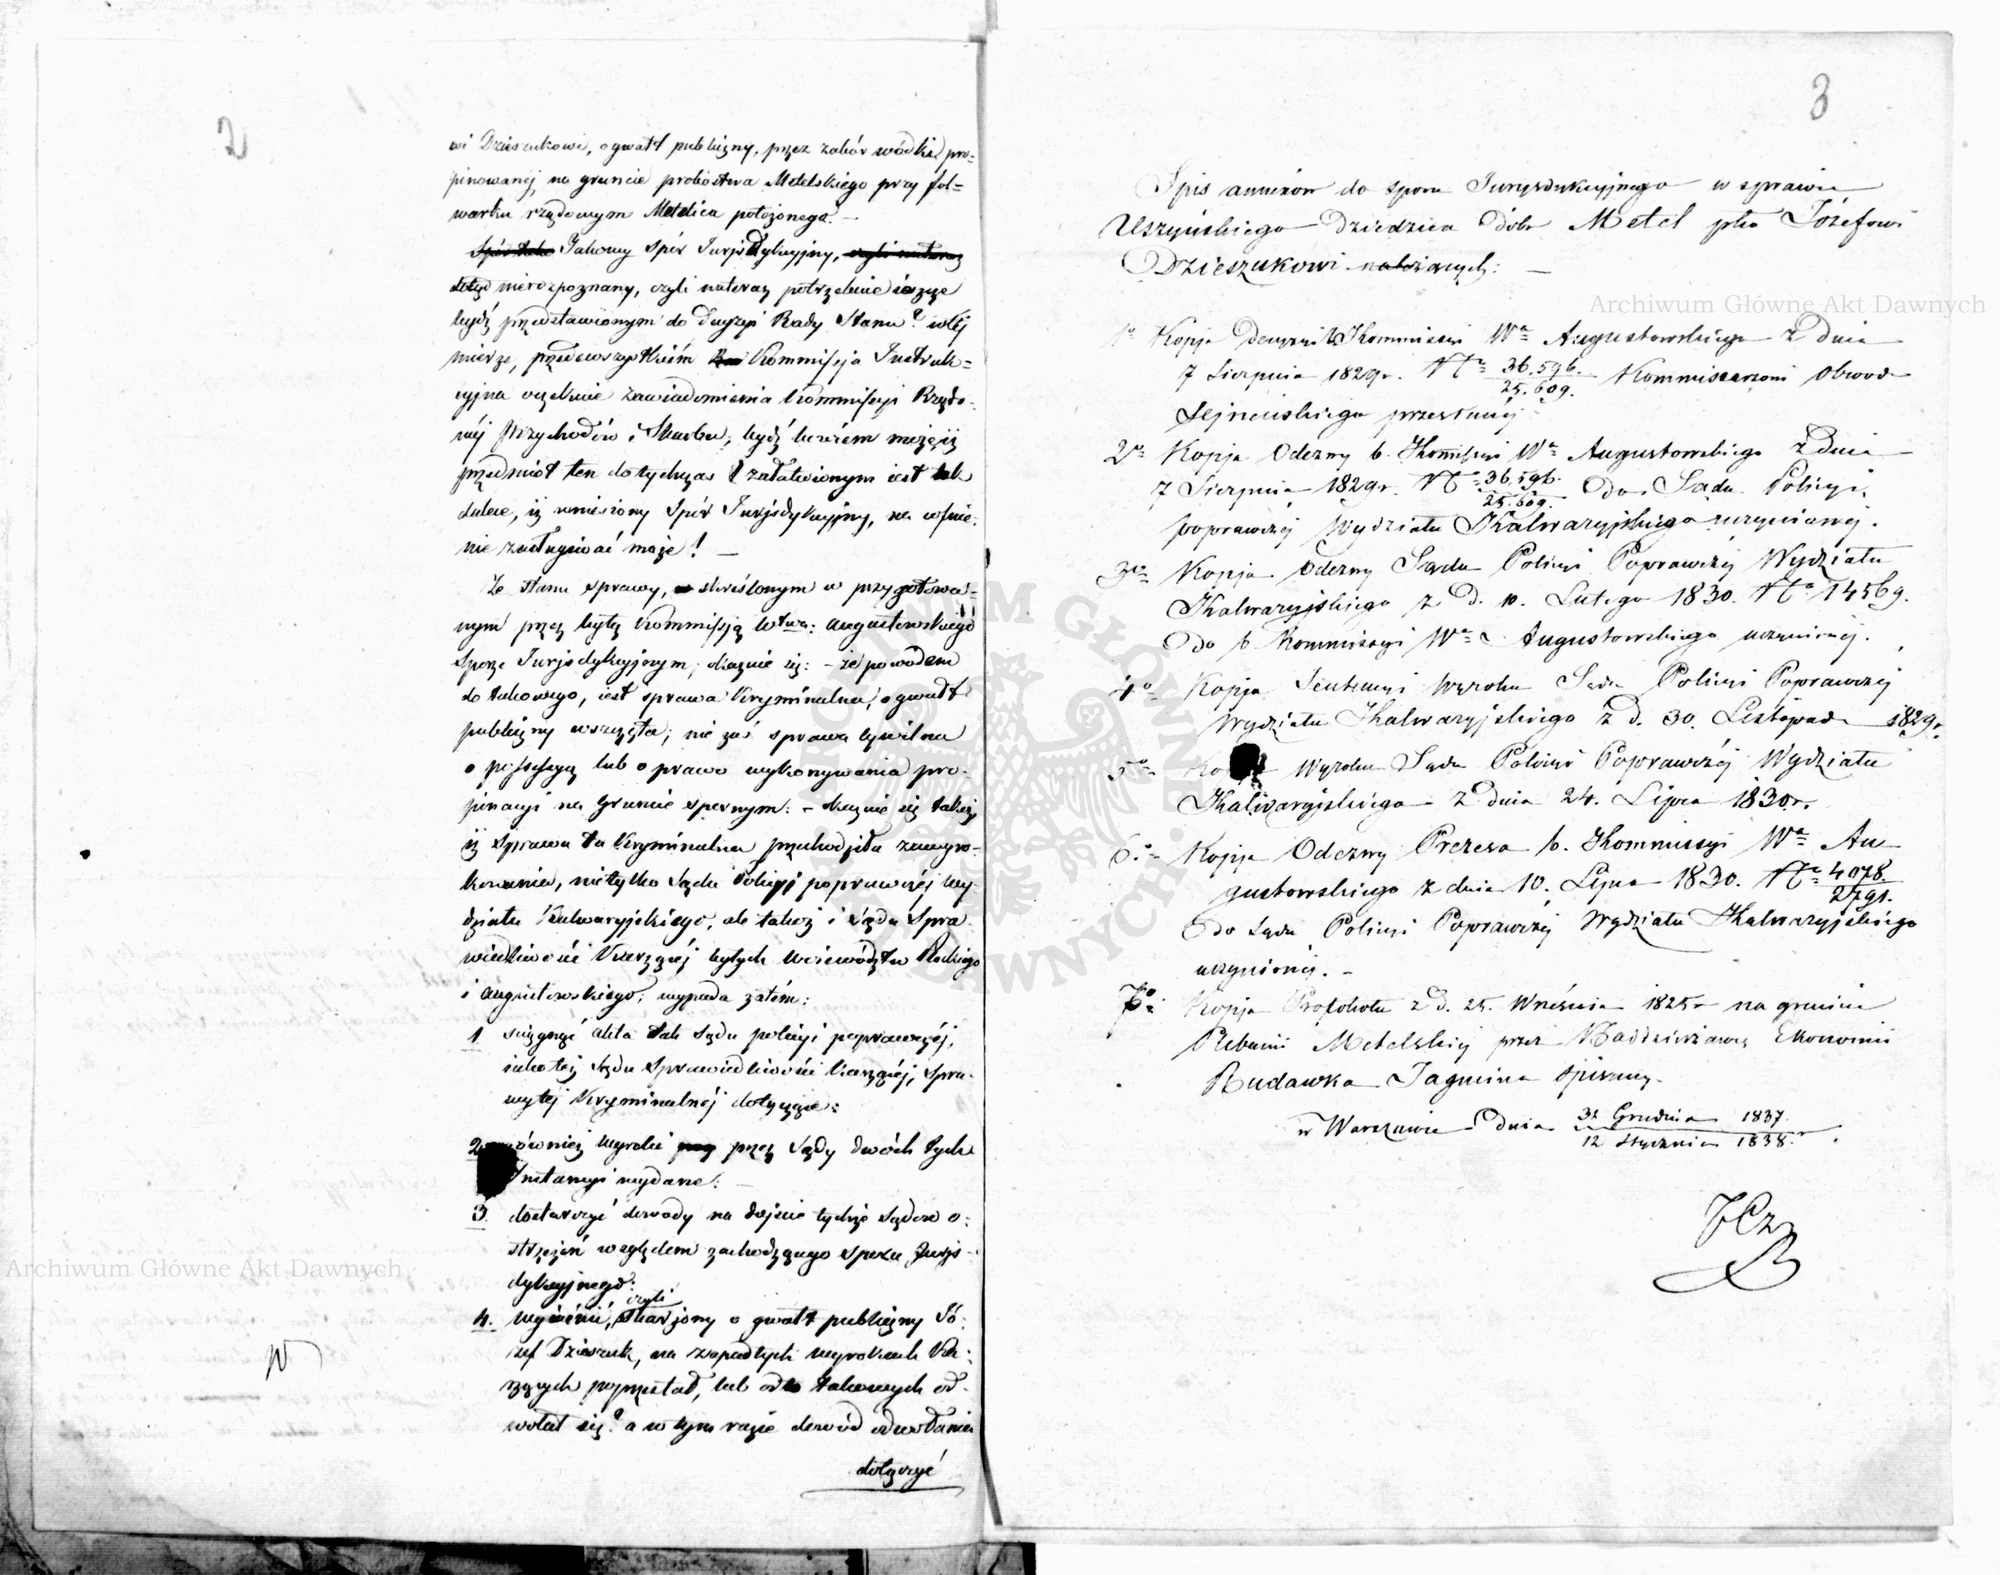 2
wi Dzieszukowi, o gwałt publiczny, przez zabór wódki pro=
pinowanej na gruncie probostwa Metelskiego przy fol=
warku rządowym Metelica położonego. —
Takowy spór Jurysdykcyjny,
dotąd nierozpoznany, czyli nateraz potrzebnie jeszcze
bydź przedstawionym do decyzji Rady Stanu? w tej
mierze, przedewszystkiem Kommissja Instruk=
cyjna oczekuje zawiadomienia Kommissyi Rządo=
wej Przychodów i Skarbu; bydź bowiem może, iż
przedmiot ten dotychczas załatwionym jest tak
dalece, iż wniesiony Spór Jurysdykcyjny, na
nie zasługiwać może! —
Ze stanu sprawy, skreślonym w przygotowa=
nym przez byłą Kommissją Wtwa: Augustowskiego
Sporze Jurysdykcyjnym; okazuje się: – że powodem
do takowego, jest sprawa kryminalna, o gwałt
publiczny wszczęta; nie zaś sprawa cywilna
o possessyą lub o prawo wykonywania pro=
pinacyi na gruncie spornym: – okazuje się także,
iż sprawa ta kryminalna przechodziła zawyro=
kowania, nietylko Sądu Policyi poprawczej Wy=
działu Kalwaryjskiego, ale także i Sądu Spra=
wiedliwości Karzącej byłych Województw Płockiego
i Augustowskiego; wypada zatem:
1 ściągnąć akta tak Sądu policyi poprawczej,
jakoteż Sądu Sprawiedliwości Karzącej, Spra=
wy tej Kryminalnej dotyczące:
2 równiez wyroki przez Sądy dwóch tych
Instancyi wydane: —
3. dostarczyć dowody na dojście tychże Sądów o=
strzeżeń względem zachodzącego sporu Jurys=
dykcyjnego:
czyli
4. wyjaśnić, skarżony o gwałt publiczny Jó=
zef Dzieszuk, na zapadłych wyrokach Ka=
rzących poprzestał, lub od takowych od=
wołał się? a w tym razie dowód odwołania
dołączyć
3
Spis annexów do sporu Jurysdykcyjnego w sprawie
Uszyńskiego Dziedzica Dóbr Metel plko Józefowi
Dzieszukowi należących: —
1º Kopja Decyzyi b. Kommissyi Wa Augustowskiego z dnia
7 Sierpnia 1829 r. No 36.596./25.609. Kommissarzowi Obwodu
Sejneńskiego przesłanej
2º Kopja Odezwy b. Kommissyi Wa Augustowskiego z dnia
7 Sierpnia 1829 r. No 36.596./25.609. Do Sądu Policyi
poprawczej Wydziału Kalwaryjskiego uczynionej.
3º Kopja Odezwy Sądu Policyi Poprawczej Wydziału
Kalwaryjskiego z d. 10. Lutego 1830. No 14569.
Do b. Kommissyi Wa Augustowskiego uczynionej.
4º Kopja Sentencyi Wyroku Sądu Policyi Poprawczej
Wydziału Kalwaryjskiego z d. 30. Listopada 1829 r.
5º Kopja Wyroku Sądu Policyi Poprawczej Wydziału
Kalwaryjskiego z dnia 24. Lipca 1830 r.
6º Kopja Odezwy Prezesa b. Kommissyi Wa Au
gustowskiego z dnia 10. Lipca 1830. No 4078./2791.
Do Sądu Policyi Poprawczej Wydziału Kalwaryjskiego
uczynionej. —
7º Kopja Protokołu z d. 25. Września 1825 r na gruncie
Plebanii Metelskiej przez Naddzierżawcę Ekonomii
Rudawka Jagmina spisany.
w Warszawie dnia 31 Grudnia 1837./12 Stycznia 1838.
Archiwum Główne Akt Dawnych
Archiwum Główne Akt Dawnych
ARCHIWUM GŁÓWNE AKT DAWNYCH